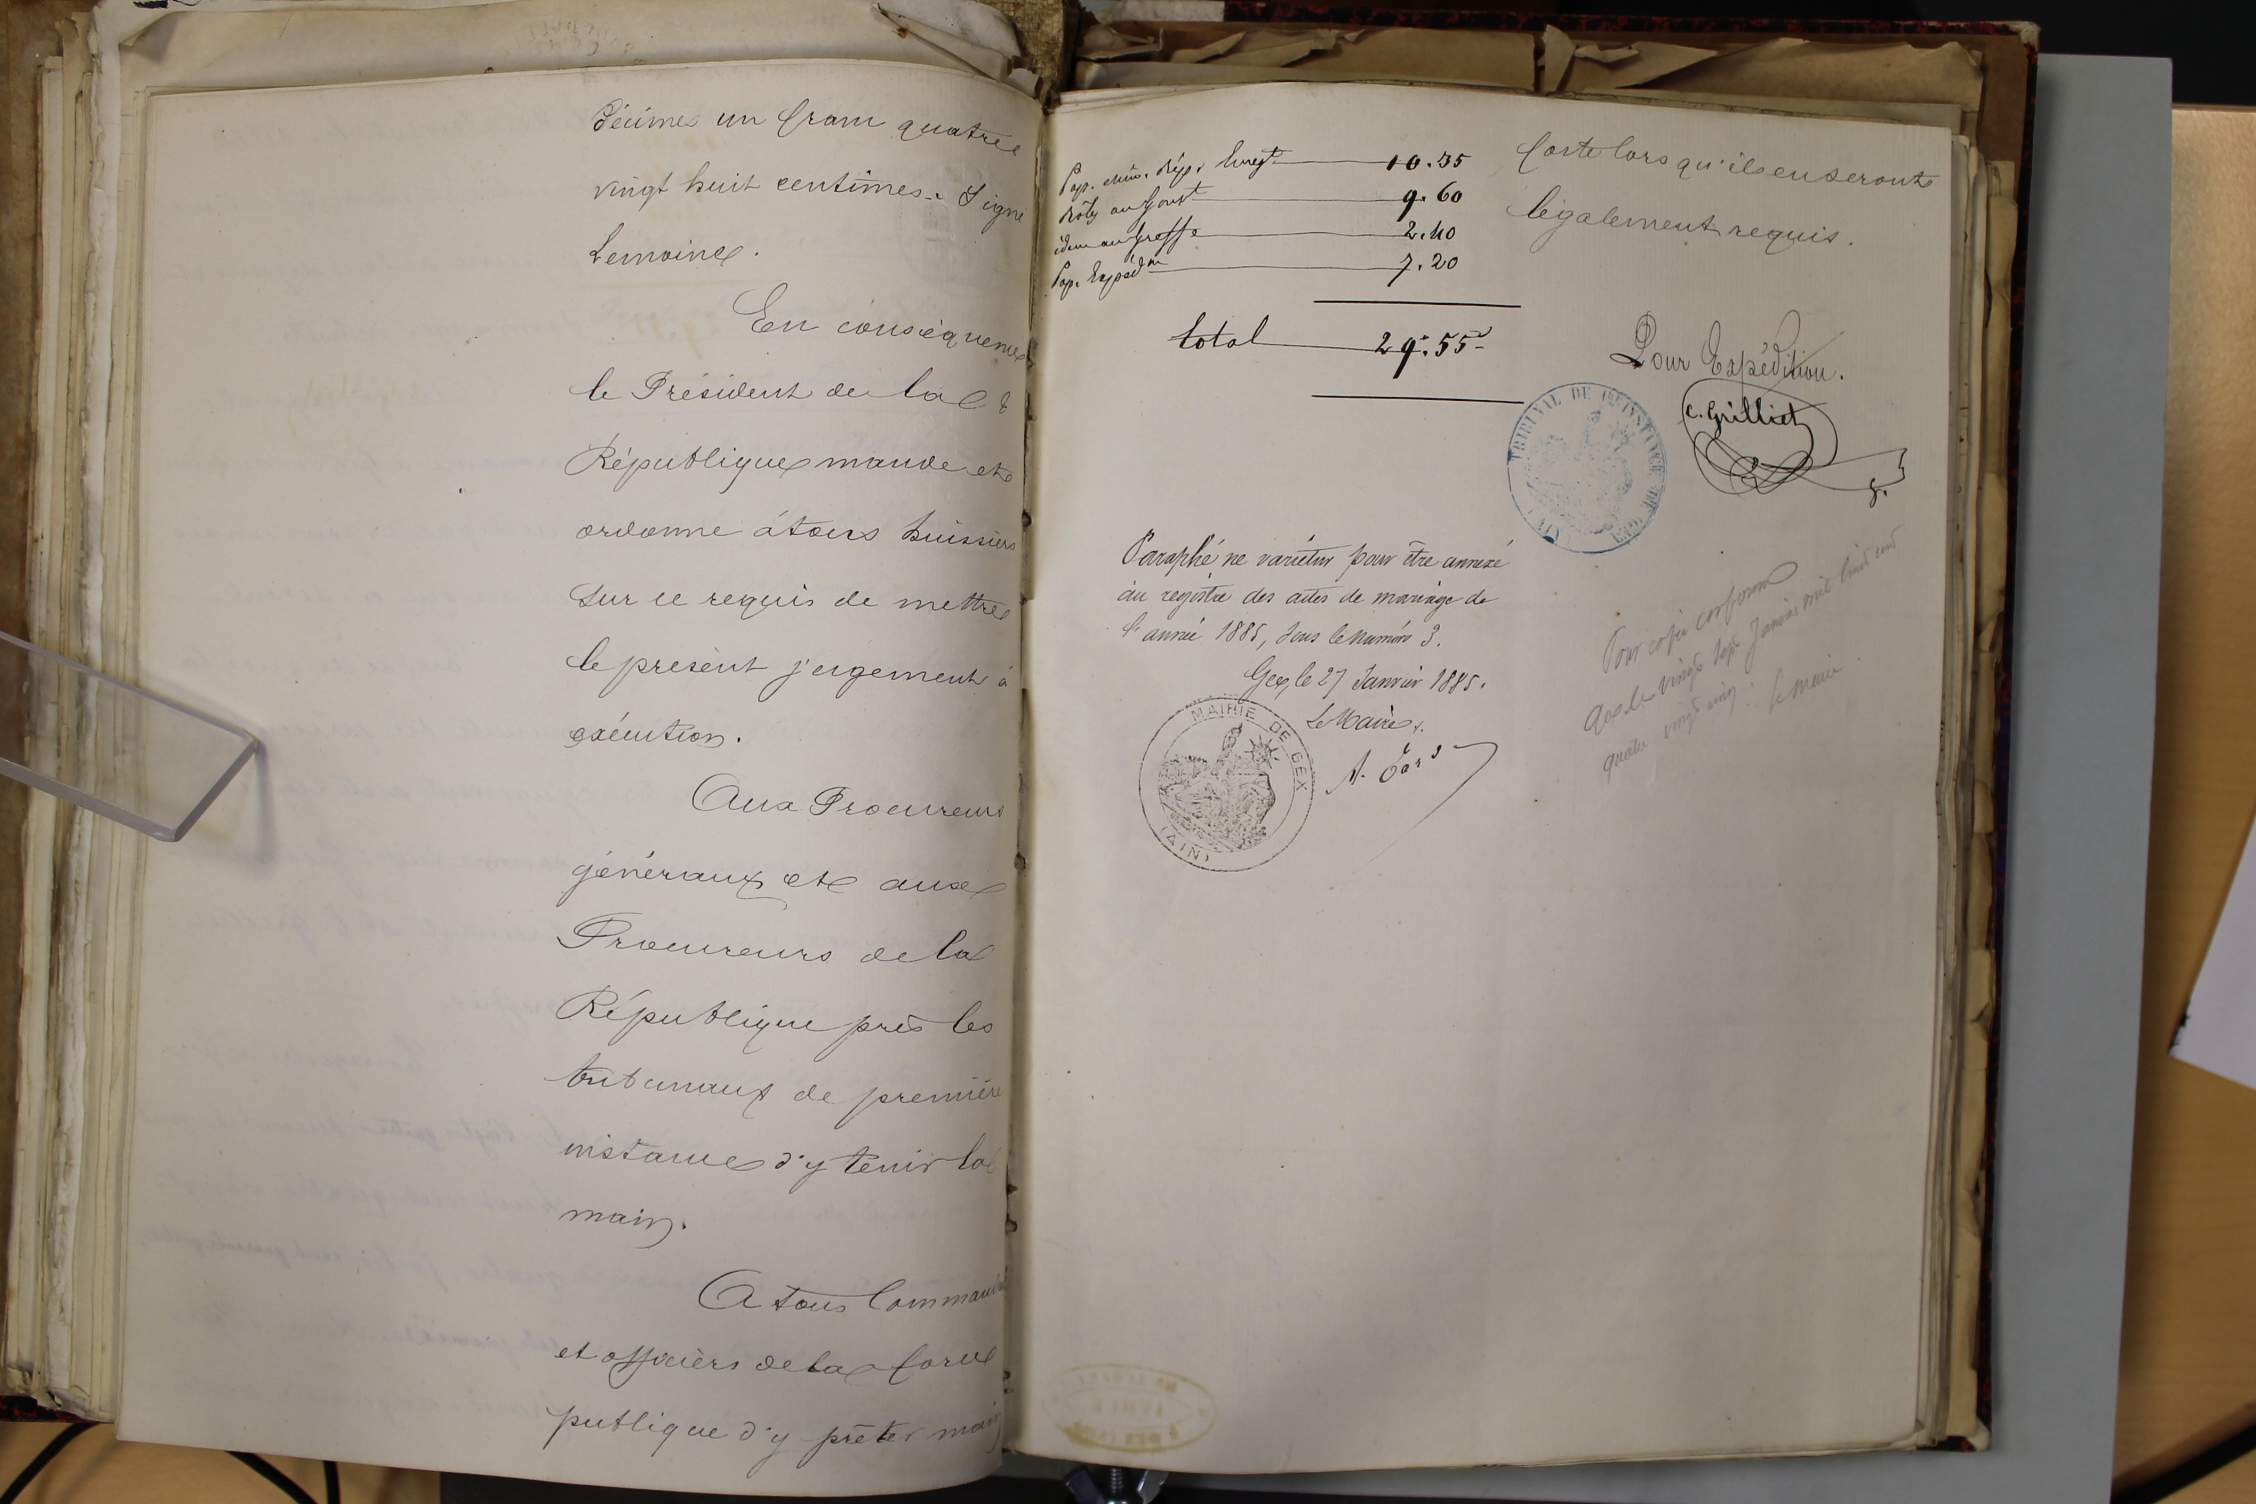 décimes un franc quatre
vingt huit centimes. Signé
Lemoine.
En conséquence
le Président de la
République mande et
ordonne à tous huissiers
sur ce requis de mettre
le présent jugement à
exécution.
Aux Procureurs
généraux et aux
Procureurs de la
République près les
tribunaux de première
instance d'y tenir la
main.
A tous Command
et officiers de la force
publique d'y prêter main
Pap. min. Rép. Enregt 10.35
au 9.60
idem au Greffe 2.40
Pap. Expédon 7.20
total 29.55
forte lorsqu'ils en seront
légalement requis.
Pour Expédition.
C. Grilliet
TRIBUNAL DE 1RE INSTANCE DE GEX
(AIN)
Paraphé ne varietur pour être annexé
au registre des actes de mariage de
l'année 1885, sous le numéro 3.
Gex, le 27 Janvier 1885.
Le Maire,
MAIRIE DE GEX
(AIN)
Pour copie conforme
Gex le vingt sept Janvier mil huit cent
quatre vingt cinq. Le Maire.